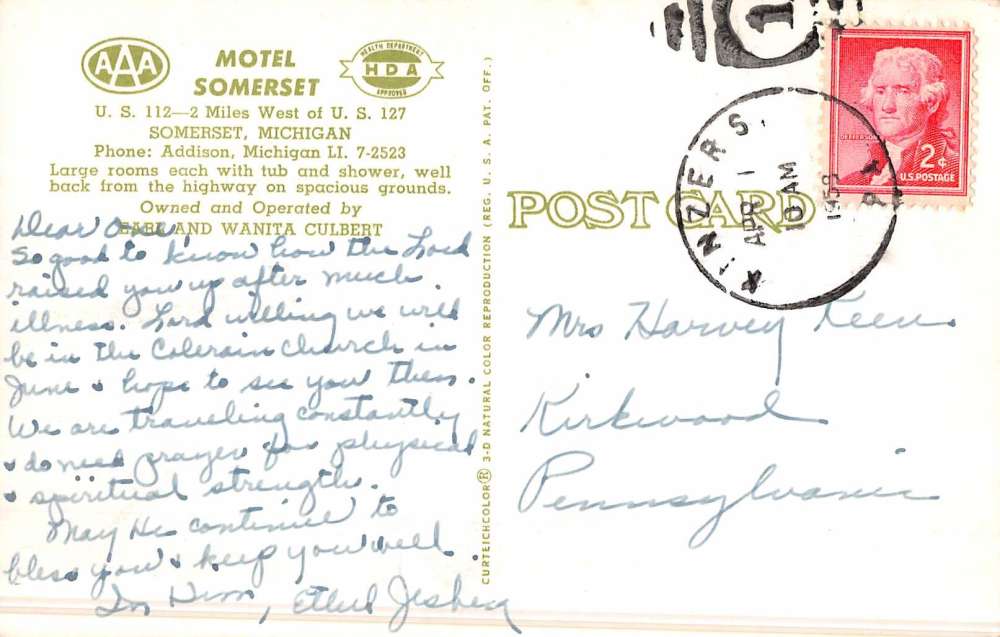 AAA
MOTEL
SOMERSET
HEALTH DEPARTMENT
HDA
APPROVED
U. S. 112—2 Miles West of U. S. 127
SOMERSET, MICHIGAN
Phone: Addison, Michigan LI. 7-2523
Large rooms each with tub and shower, well
back from the highway on spacious grounds.
Owned and Operated by
EARL AND WANITA CULBERT
Dear One,
So good to know how the Lord
raised you up after much
illness. Lord willing we will
be in the Colerain Church in
June & hope to see you then.
We are traveling constantly
& do need prayer for physical
& spiritual strength.
May He continue to
bless you & keep you well.
In Him, Ethel
CURTEICHCOLOR® 3-D NATURAL COLOR REPRODUCTION (REG. U. S. A. PAT. OFF.)
POST CARD
1
KINZERS, PA.
APR 1
10 AM
JEFFERSON
2¢
U.S. POSTAGE
Mrs Harvey Keen
Kirkwood
Pennsylvania